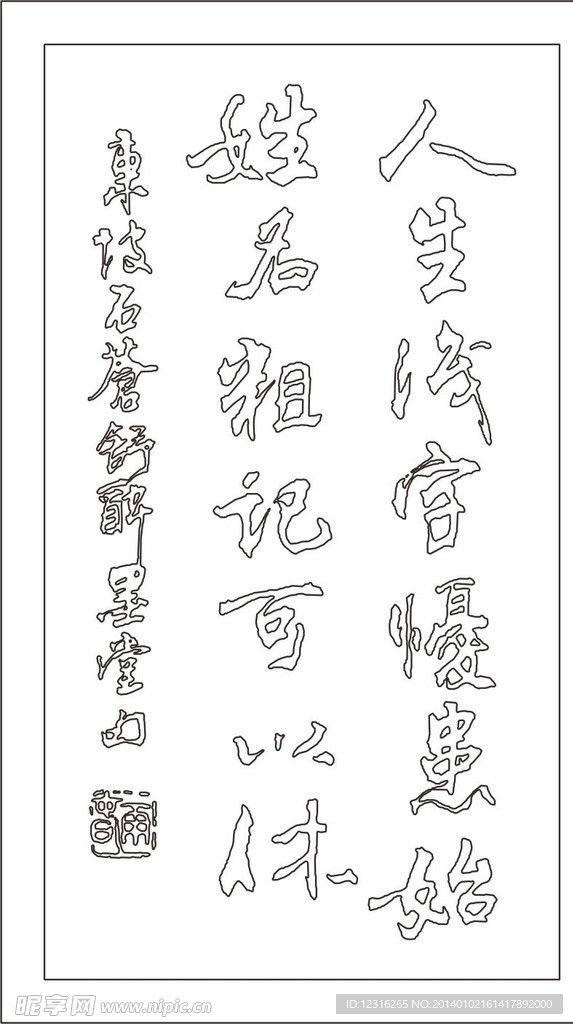 人生識字懮患始
姓名粗記可以休
東坡石蒼舒醉墨堂句
昵享网 www.nipic.cn
ID:12316265 NO:20140102161417892000